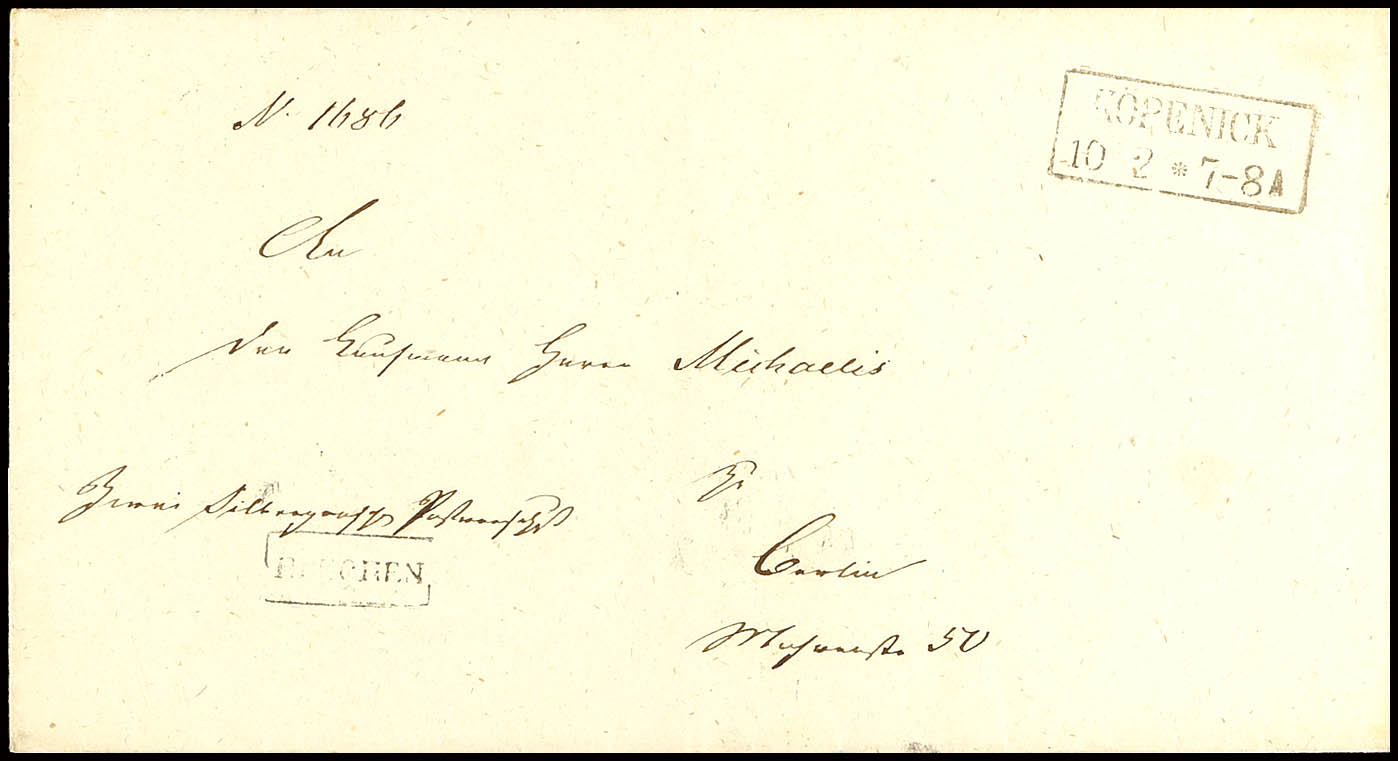 KÖPENICK
10 2 * 7-8A
N. 1686
An
den Kaufmann Herrn Michaelis
Zwei Silbergroschen Postvorschuß
zu
Berlin
50